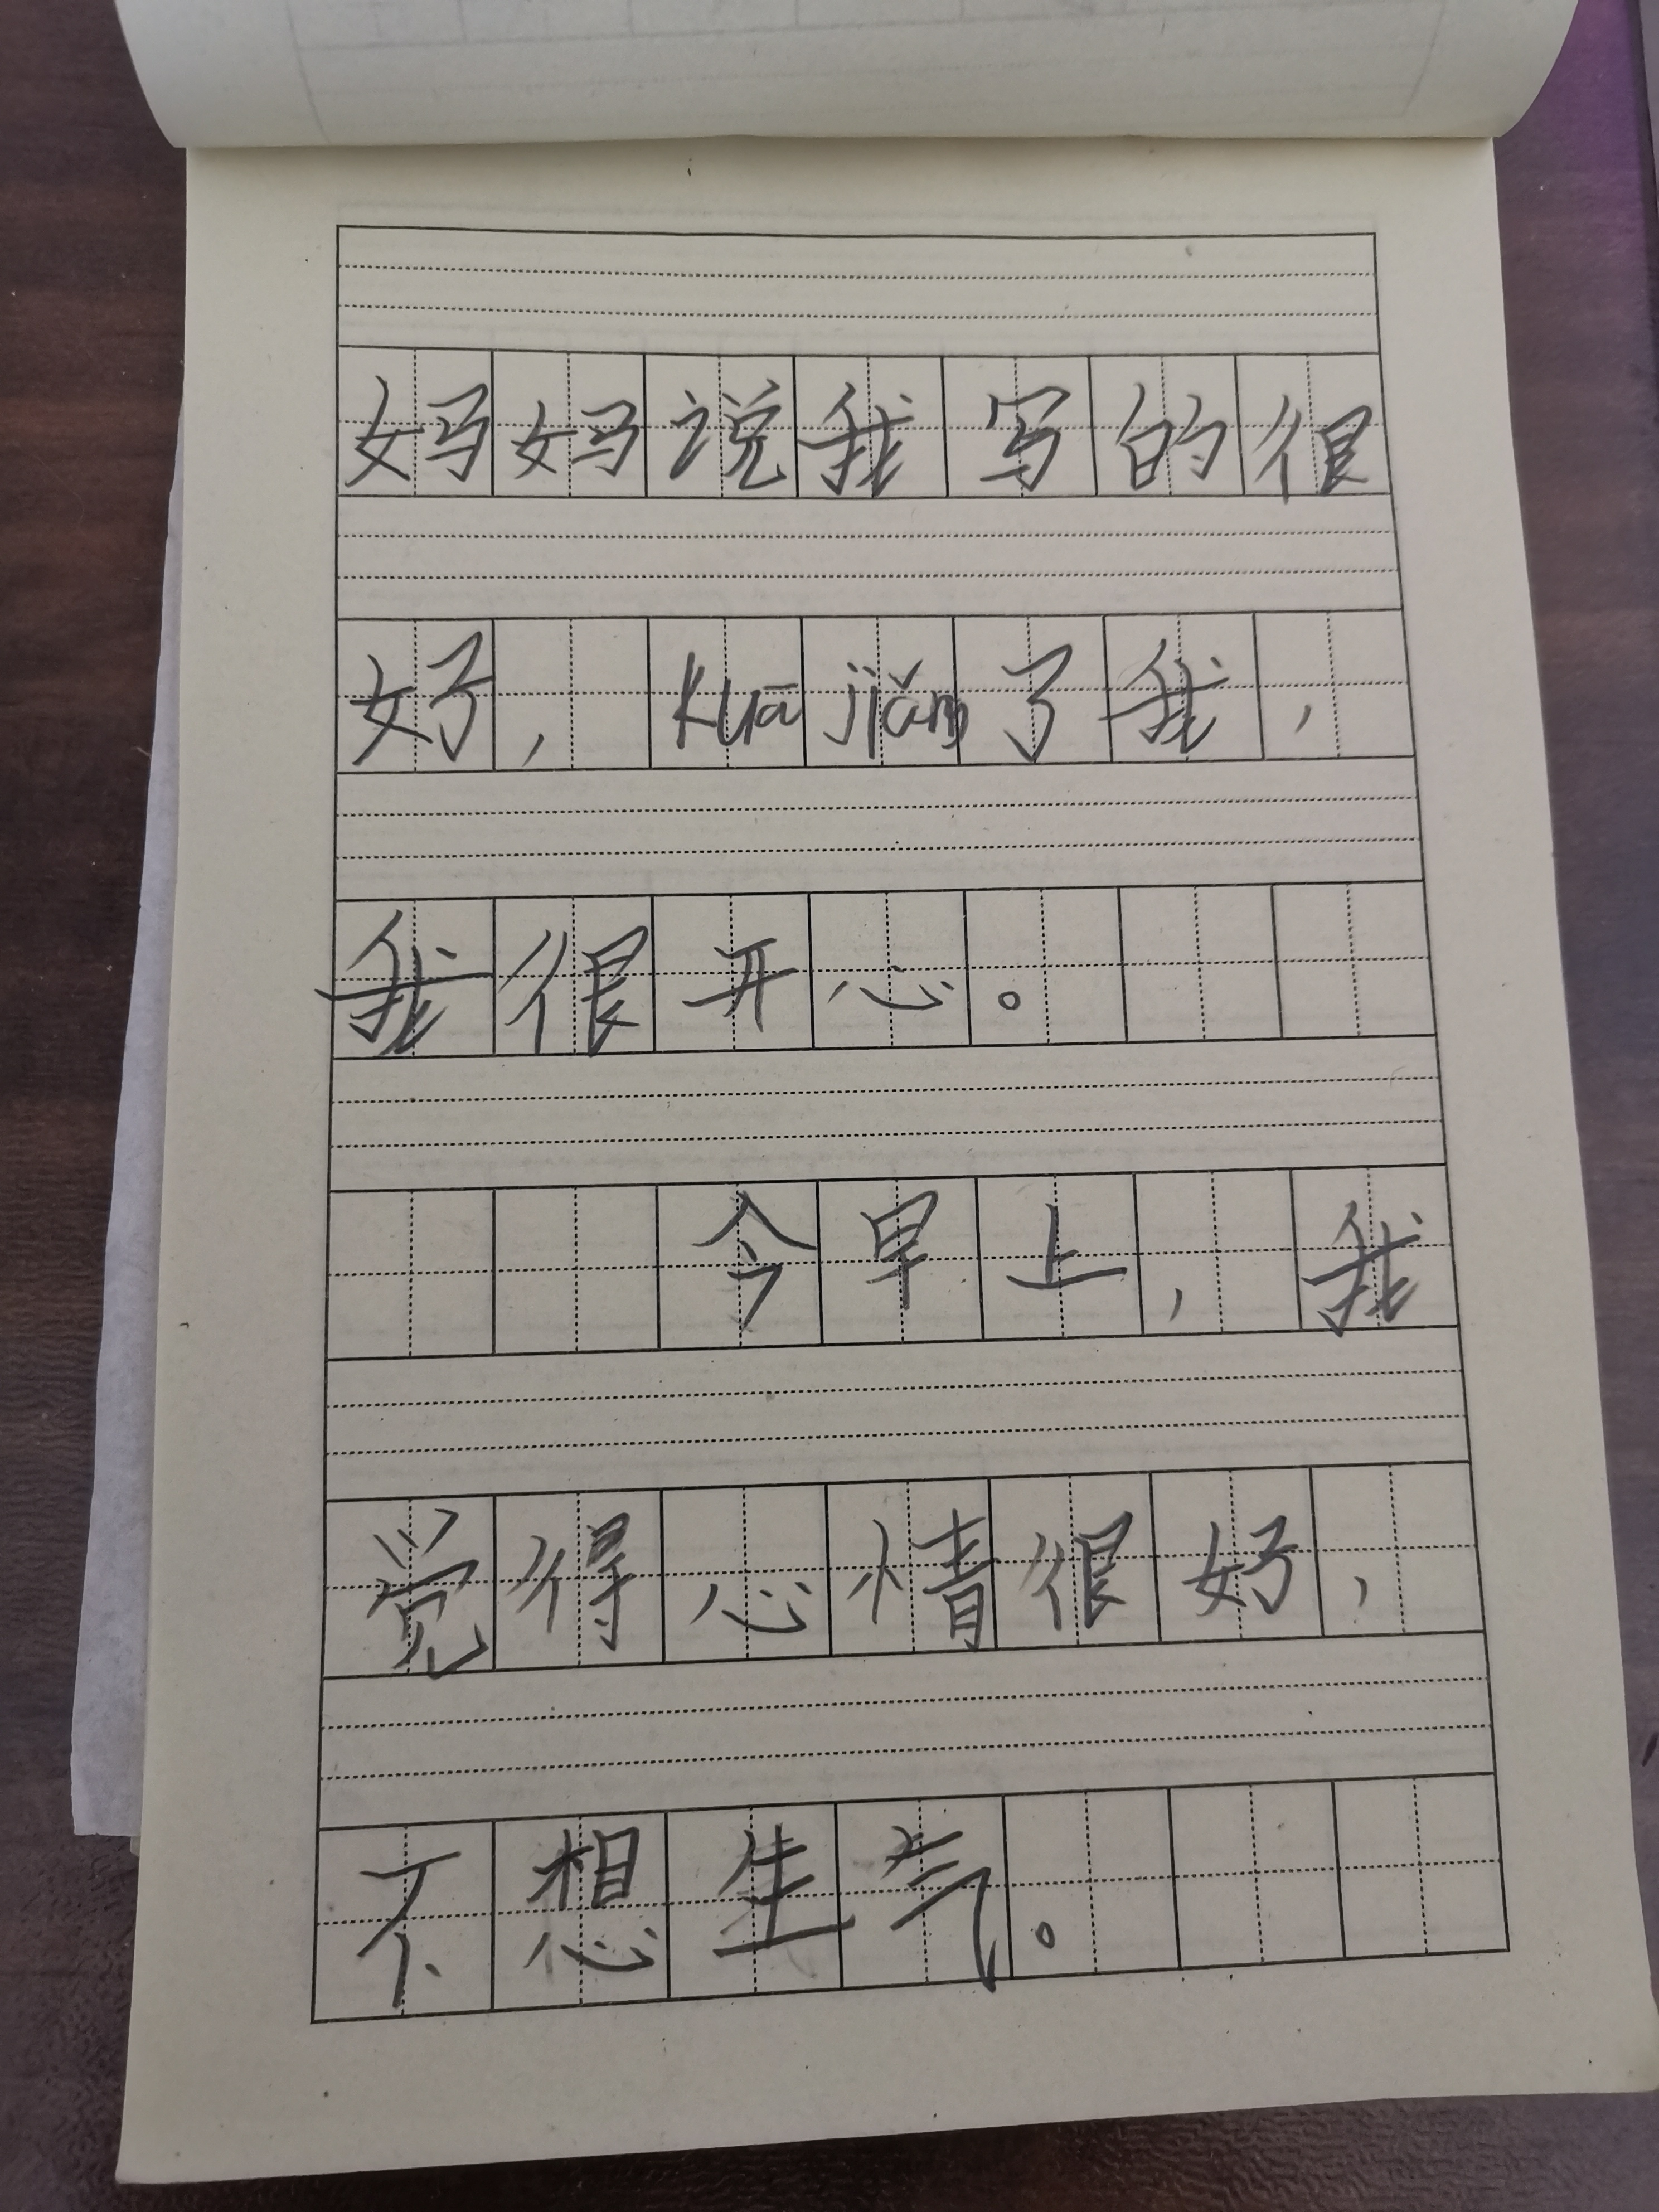 妈妈说我写的很
好，kuā jiǎng了我，
我很开心。
今早上，我
觉得心情很好，
不想生气。